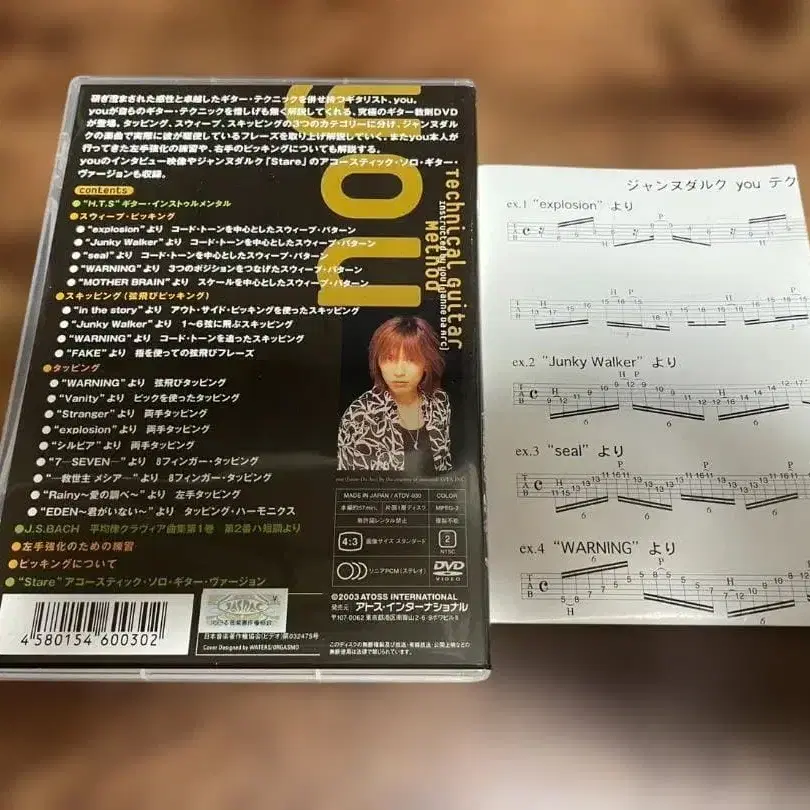 研ぎ澄まされた感性と卓越したギター・テクニックを併せ持つギタリスト、you。
youが自らのギター・テクニックを惜しげも無く解説してくれる、究極のギター教則DVD
が登場。タッピング、スウィープ、スキッピングの3つのカテゴリーに分け、ジャンヌダル
クの楽曲で実際に彼が駆使しているフレーズを取り上げ解説していく。またyou本人が
行ってきた左手強化の練習や、右手のピッキングについても解説する。
youのインタビュー映像やジャンヌダルク「Stare」のアコースティック・ソロ・ギター・
ヴァージョンも収録。
contents
●"H.T.S" ギター・インストゥルメンタル
●スウィープ・ピッキング
●"explosion" より コード・トーンを中心としたスウィープ・パターン
●"Junky Walker" より コード・トーンを中心としたスウィープ・パターン
●"seal" より コード・トーンを中心としたスウィープ・パターン
●"WARNING" より 3つのポジションをつなげたスウィープ・パターン
●"MOTHER BRAIN" より スケールを中心としたスウィープ・パターン
●スキッピング（弦飛びピッキング）
●"in the story" より アウト・サイド・ピッキングを使ったスキッピング
●"Junky Walker" より 1〜6弦に飛ぶスキッピング
●"WARNING" より コード・トーンを追ったスキッピング
●"FAKE" より 指を使っての弦飛びフレーズ
●タッピング
●"WARNING" より 弦飛びタッピング
●"Vanity" より ピックを使ったタッピング
●"Stranger" より 両手タッピング
●"explosion" より 両手タッピング
●"シルビア" より 両手タッピング
●"7―SEVEN―" より 8フィンガー・タッピング
●"―救世主 メシア―" より 8フィンガー・タッピング
●"Rainy〜愛の調べ〜" より 左手タッピング
●"EDEN〜君がいない〜" より タッピング・ハーモニクス
●J.S.BACH 平均律クラヴィア曲集第1巻 第2番ハ短調より
●左手強化のための練習
●ピッキングについて
●"Stare" アコースティック・ソロ・ギター・ヴァージョン
you
Technical Guitar
Method
instructed by you (Janne Da Arc)
MADE IN JAPAN / ATDV-030
COLOR
本編約57min.
片面1層ディスク
MPEG-2
無許諾レンタル禁止
複製不能
4:3
画像サイズ スタンダード
2
NTSC
リニアPCM（ステレオ）
DVD
VIDEO
©2003 ATOSS INTERNATIONAL
発売元：アトス・インターナショナル
〒107-0062 東京都港区南青山2-6-9ポワビル8
このディスクの無断複製及び放送・有線放送・公開上映などの
無断使用は法律で禁じられています。
4 580154 600302
JASRAC
日本音楽著作権協会(ビデオ)第032475号
Cover Designed by WATERS/ORGASMO
ジャンヌダルク you テク
ex.1 "explosion" より
ex.2 "Junky Walker" より
ex.3 "seal" より
ex.4 "WARNING" より